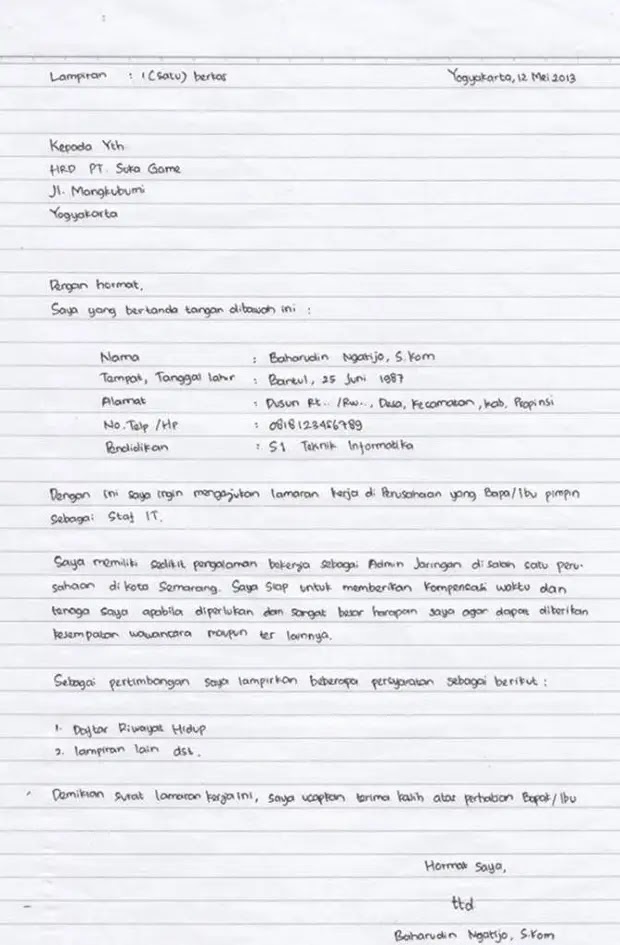 Lampiran : 1 (Satu) berkas Yogyakarta, 12 Mei 2013
Kepada Yth
HRD PT. Suka Game
Jl. Mangkubumi
Yogyakarta
Dengan hormat,
Saya yang bertanda tangan dibawah ini :
Nama : Baharudin Ngatijo, S.Kom
Tempat, Tanggal lahir : Bantul, 25 Juni 1987
Alamat : Dusun Rt.. /Rw.., Desa, Kecamatan, kab, Propinsi
No. Telp /Hp : 0818123456789
Pendidikan : S1 Teknik Informatika
Dengan ini saya ingin mengajukan lamaran kerja di Perusahaan yang Bapa/Ibu pimpin
sebagai Staf IT.
Saya memiliki sedikit pengalaman bekerja sebagai Admin Jaringan di salah satu peru-
sahaan di kota Semarang. Saya Siap untuk memberikan kompensasi waktu dan
tenaga saya apabila diperlukan dan sangat besar harapan saya agar dapat diberikan
kesempatan wawancara maupun tes lainnya.
Sebagai pertimbangan saya lampirkan beberapa persyaratan sebagai berikut :
1. Daftar Riwayat Hidup
2. lampiran lain dst.
Demikian surat lamaran kerja ini, saya ucapkan terima kasih atas perhatian Bapak/Ibu
Hormat Saya,
ttd
Baharudin Ngatijo, S.Kom